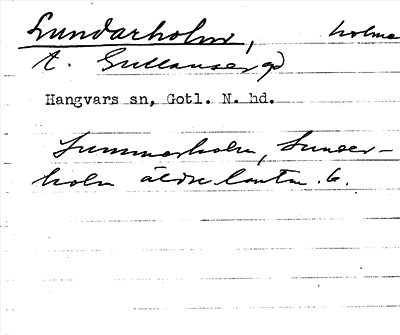 Lundarholm, holme
t. Gullausergd
Hangvars sn, Gotl. N. hd.
Lummerholm, Lunser-
holm äldre lantm. 6.